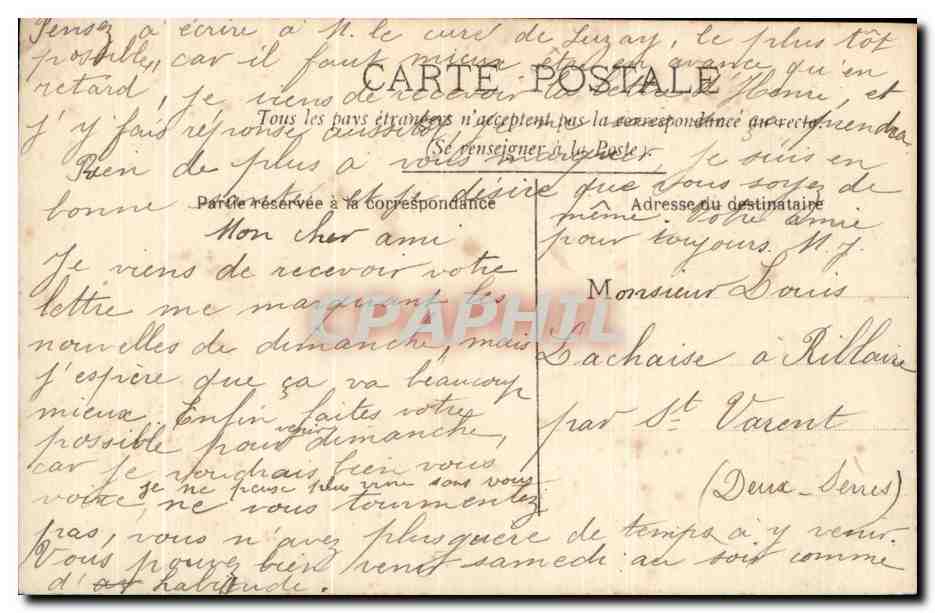 Pensez à écrire à M. le curé de Luzay, le plus tôt
possible, car il faut mieux être en avance qu'en
CARTE POSTALE
retard, je viens de recevoir la lettre d'Henri, et
Tous les pays étrangers n'acceptent pas la correspondance au recto.
j'y fais réponse aussitôt,
(Se renseigner à la Poste).
Rien de plus à vous marquer, je suis en
bonne santé et je désire que vous soyez de
Partie réservée à la correspondance
Adresse du destinataire
même. Votre amie
pour toujours. M. J.
Mon cher ami
Je viens de recevoir votre
lettre me marquant les
nouvelles de dimanche, mais
j'espère que ça va beaucoup
mieux. Enfin faites votre
possible pour venir dimanche,
car je voudrais bien vous
voire, je ne peux plus vivre sans vous
ne vous tourmentez
pas, vous n'avez plus guère de temps à y venir.
Vous pouvez bien venir samedi au soir comme
d' habitude.
Monsieur Louis
Lachaise à Rillaire
par St Varent
(Deux-Sèvres)
CPAPHIL